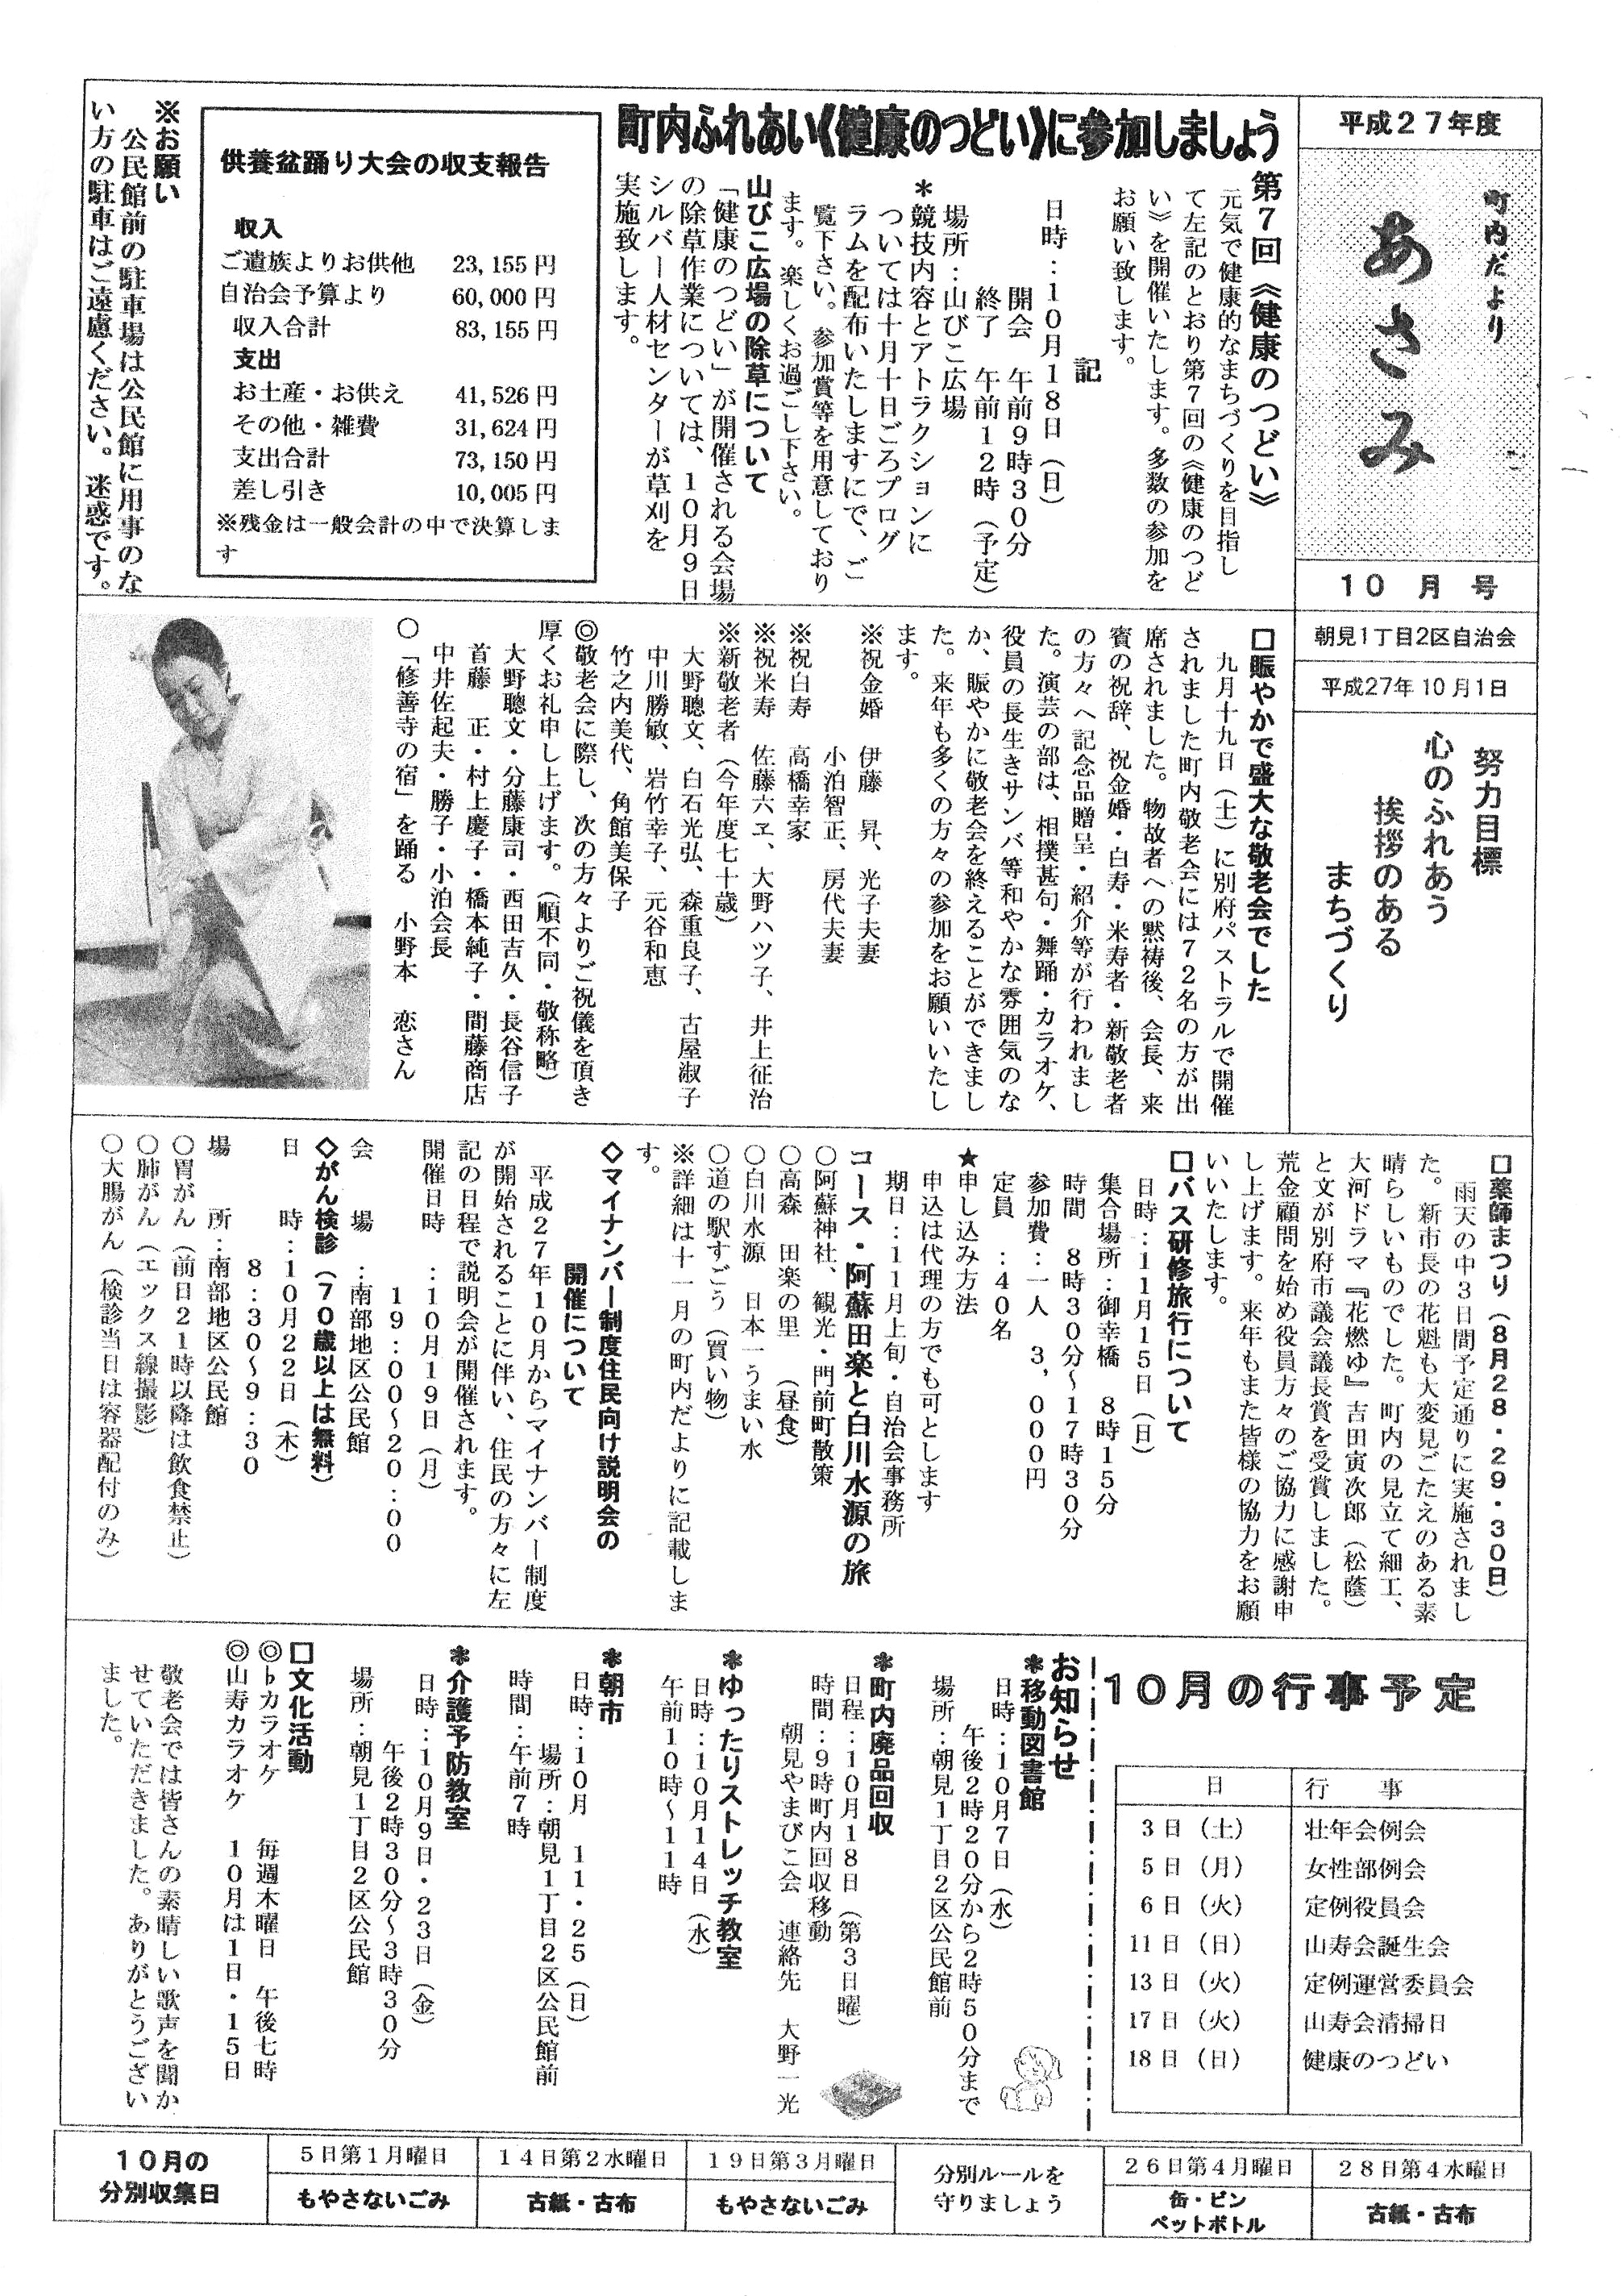 平成27年度
町内だより
あさみ
10月号
朝見1丁目2区自治会
平成27年10月1日
努力目標
心のふれあう
挨拶のある
まちづくり
町内ふれあい《健康のつどい》に参加しましょう
第7回《健康のつどい》
元気で健康的なまちづくりを目指し
て左記のとおり第7回の《健康のつど
い》を開催いたします。多数の参加を
お願い致します。
記
日時:10月18日(日)
開会 午前9時30分
終了 午前12時(予定)
場所:山びこ広場
*競技内容とアトラクションに
ついては十月十日ごろプログ
ラムを配布いたしますにで、ご
覧下さい。参加賞等を用意しており
ます。楽しくお過ごし下さい。
山びこ広場の除草について
「健康のつどい」が開催される会場
の除草作業については、10月9日
シルバー人材センターが草刈を
実施致します。
供養盆踊り大会の収支報告
収入
ご遺族よりお供他 23,155円
自治会予算より 60,000円
収入合計 83,155円
支出
お土産・お供え 41,526円
その他・雑費 31,624円
支出合計 73,150円
差し引き 10,005円
※残金は一般会計の中で決算しま
す
※お願い
公民館前の駐車場は公民館に用事のな
い方の駐車はご遠慮ください。迷惑です。
□賑やかで盛大な敬老会でした
九月十九日(土)に別府パストラルで開催
されました町内敬老会には72名の方が出
席されました。物故者への黙祷後、会長、来
賓の祝辞、祝金婚・白寿・米寿者・新敬老者
の方々へ記念品贈呈・紹介等が行われまし
た。演芸の部は、相撲甚句・舞踊・カラオケ、
役員の長生きサンバ等和やかな雰囲気のな
か、賑やかに敬老会を終えることができまし
た。来年も多くの方々の参加をお願いいたし
ます。
※祝金婚 伊藤 昇、光子夫妻
小泊智正、房代夫妻
※祝白寿 高橋幸家
※祝米寿 佐藤六ヱ、大野ハツ子、井上征治
※新敬老者(今年度七十歳)
大野聰文、白石光弘、森重良子、古屋淑子
中川勝敏、岩竹幸子、元谷和恵
竹之内美代、角館美保子
◎敬老会に際し、次の方々よりご祝儀を頂き
厚くお礼申し上げます。(順不同・敬称略)
大野聰文・分藤康司・西田吉久・長谷信子
首藤 正・村上慶子・橋本純子・間藤商店
中井佐起夫・勝子・小泊会長
○「修善寺の宿」を踊る 小野本 恋さん
□薬師まつり(8月28・29・30日)
雨天の中3日間予定通りに実施されまし
た。新市長の花魁も大変見ごたえのある素
晴らしいものでした。町内の見立て細工、
大河ドラマ『花燃ゆ』吉田寅次郎(松蔭)
と文が別府市議会議長賞を受賞しました。
荒金顧問を始め役員方々のご協力に感謝申
し上げます。来年もまた皆様の協力をお願
いいたします。
□バス研修旅行について
日時:11月15日(日)
集合場所:御幸橋 8時15分
時間 8時30分~17時30分
参加費:一人 3,000円
定員 :40名
★申し込み方法
申込は代理の方でも可とします
期日:11月上旬・自治会事務所
コース・阿蘇田楽と白川水源の旅
○阿蘇神社、観光・門前町散策
○高森 田楽の里 (昼食)
○白川水源 日本一うまい水
○道の駅すごう(買い物)
※詳細は十一月の町内だよりに記載しま
す。
◇マイナンバー制度住民向け説明会の
開催について
平成27年10月からマイナンバー制度
が開始されることに伴い、住民の方々に左
記の日程で説明会が開催されます。
開催日時 :10月19日(月)
19:00~20:00
会 場 :南部地区公民館
◇がん検診(70歳以上は無料)
日 時:10月22日(木)
8:30~9:30
場 所:南部地区公民館
○胃がん(前日21時以降は飲食禁止)
○肺がん(エックス線撮影)
○大腸がん(検診当日は容器配付のみ)
10月の行事予定
日 行事
3日(土) 壮年会例会
5日(月) 女性部例会
6日(火) 定例役員会
11日(日) 山寿会誕生会
13日(火) 定例運営委員会
17日(火) 山寿会清掃日
18日(日) 健康のつどい
お知らせ
*移動図書館
日時:10月7日(水)
午後2時20分から2時50分まで
場所:朝見1丁目2区公民館前
*町内廃品回収
日程:10月18日(第3日曜)
時間:9時町内回収移動
朝見やまびこ会 連絡先 大野一光
*ゆったりストレッチ教室
日時:10月14日(水)
午前10時~11時
*朝市
日時:10月 11・25(日)
場所:朝見1丁目2区公民館前
時間:午前7時
*介護予防教室
日時:10月9日・23日(金)
午後2時30分~3時30分
場所:朝見1丁目2区公民館
□文化活動
◎♭カラオケ 毎週木曜日 午後七時
◎山寿カラオケ 10月は1日・15日
敬老会では皆さんの素晴しい歌声を聞か
せていただきました。ありがとうござい
ました。
10月の
分別収集日
5日第1月曜日
もやさないごみ
14日第2水曜日
古紙・古布
19日第3月曜日
もやさないごみ
分別ルールを
守りましょう
26日第4月曜日
缶・ビン
ペットボトル
28日第4水曜日
古紙・古布